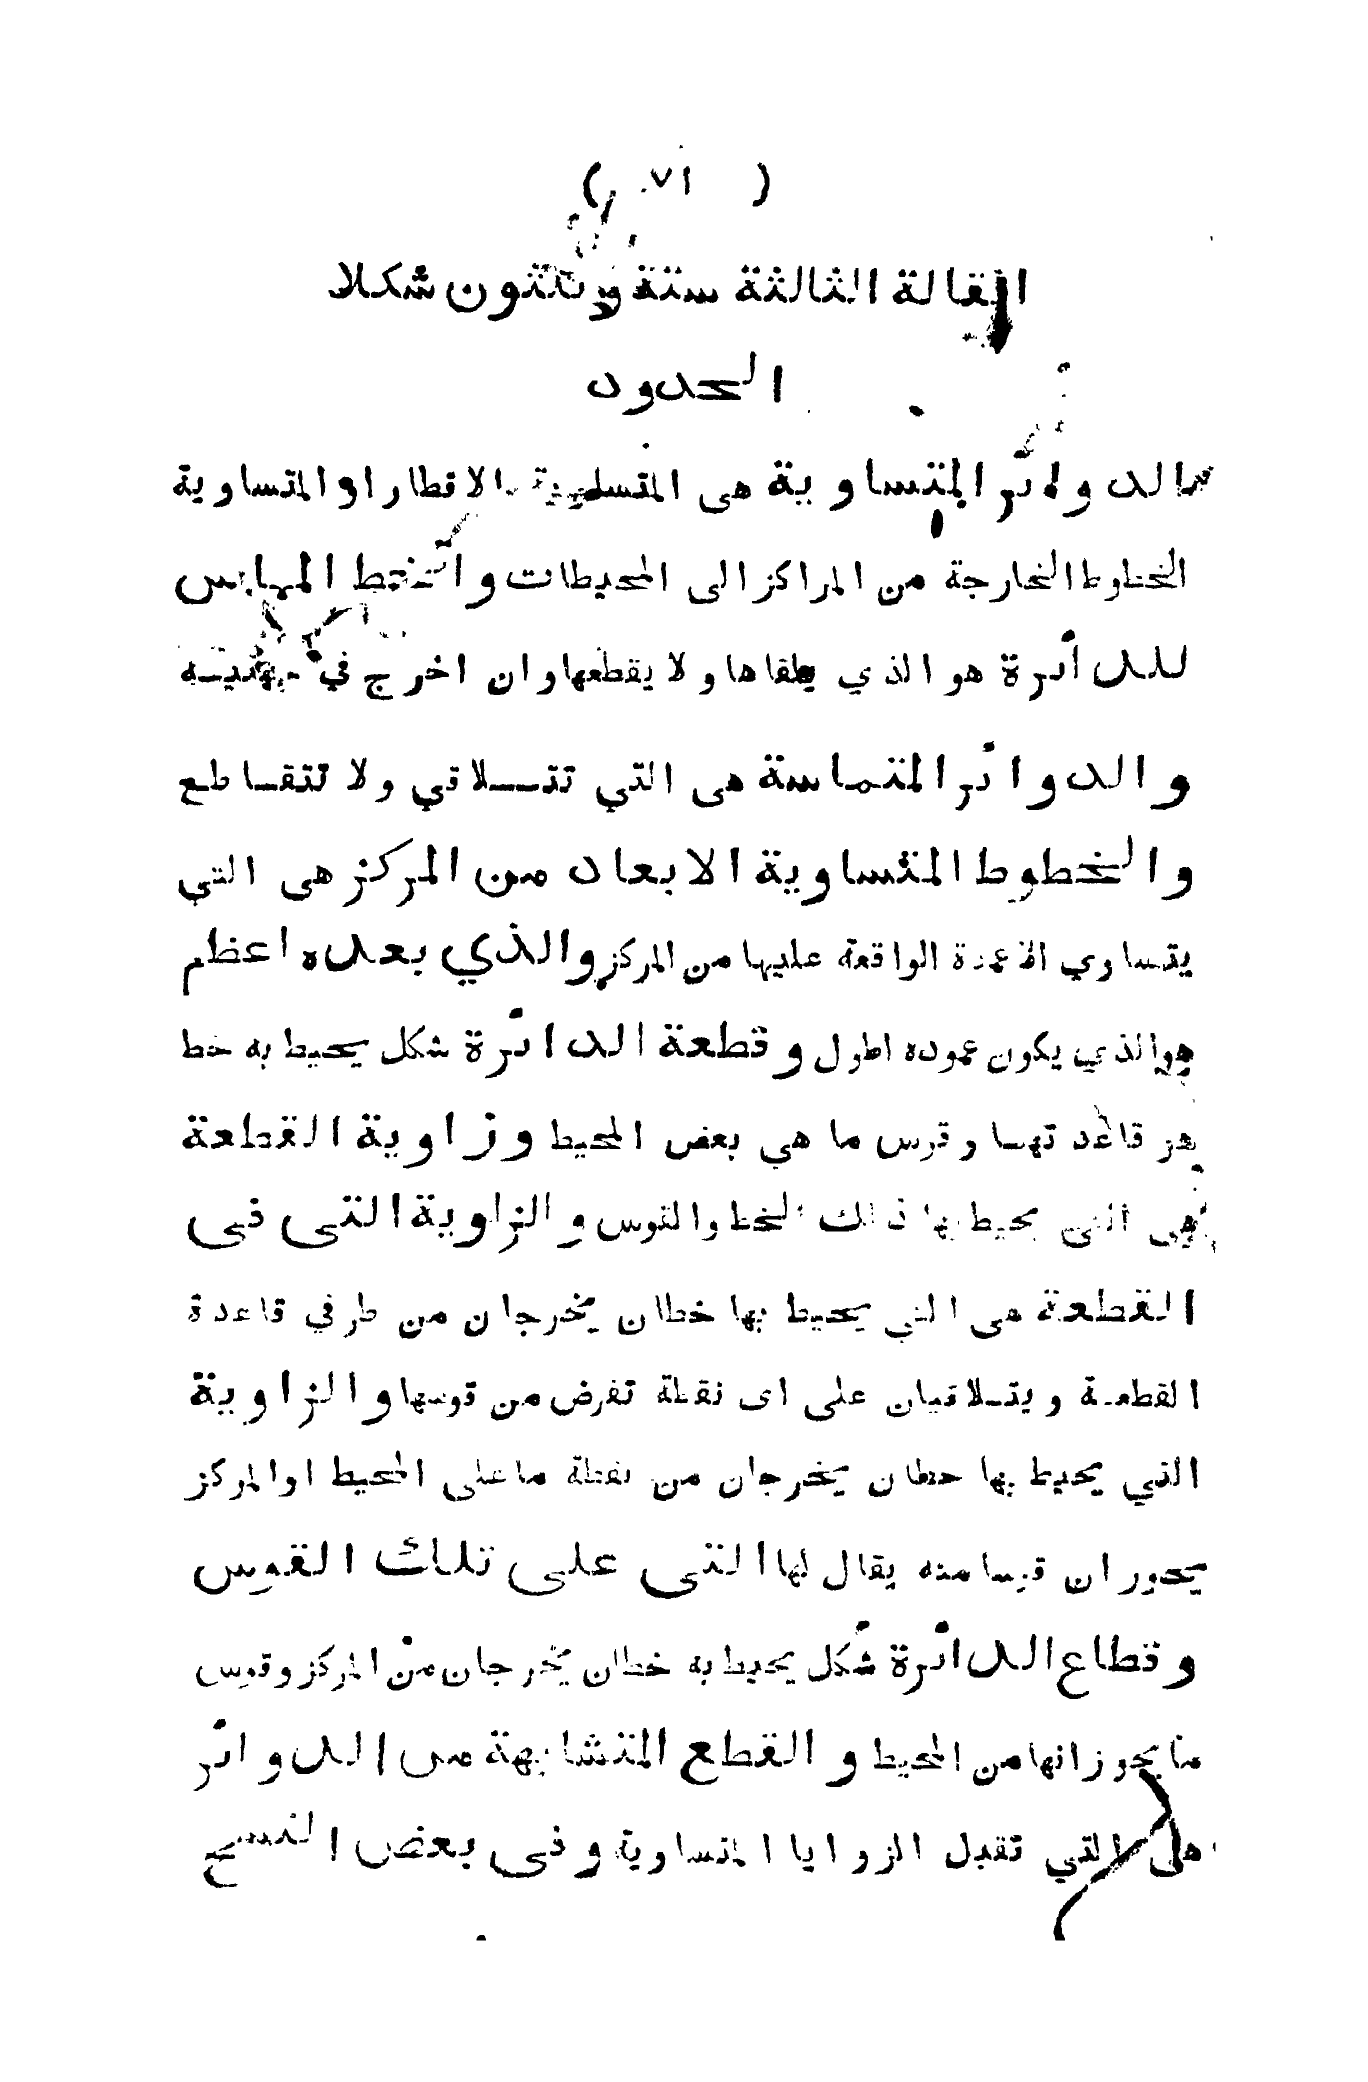 ( ٧١ )
المقالة الثالثة ستة وثلثون شكلا
الحدود
الدوائر المتساوية هى المتساوية الاقطار او المتساوية
الخطوط الخارجة من المراكز الى المحيطات والخط المماس
للدائرة هو الذي يلقاها ولا يقطعها وان اخرج في جهتيه
والدوائر المتماسة هى التي تتلاقي ولا تتقاطع
والخطوط المتساوية الابعاد من المركز هى التي
يتساوي الاعمدة الواقعة عليها من المركز والذي بعده اعظم
هو الذي يكون عموده اطول وقطعة الدائرة شكل يحيط به خط
هو قاعدتها وقوس ما هي بعض المحيط وزاوية القطعة
هى التى يحيط بها ذلك الخط والقوس والزاوية التى فى
القطعة هى التي يحيط بها خطان يخرجان من طرفي قاعدة
القطعة ويتلاقيان على اى نقطة تفرض من قوسها والزاوية
التي يحيط بها خطان يخرجان من نقطة ما على المحيط او المركز
يحوزان قوسا منه يقال لها التى على تلك القوس
وقطاع الدائرة شكل يحيط به خطان يخرجان من المركز وقوس
ما يحوزانها من المحيط والقطع المتشابهة من الدوائر
هى التي تقبل الزوايا المتساوية وفى بعض النسخ